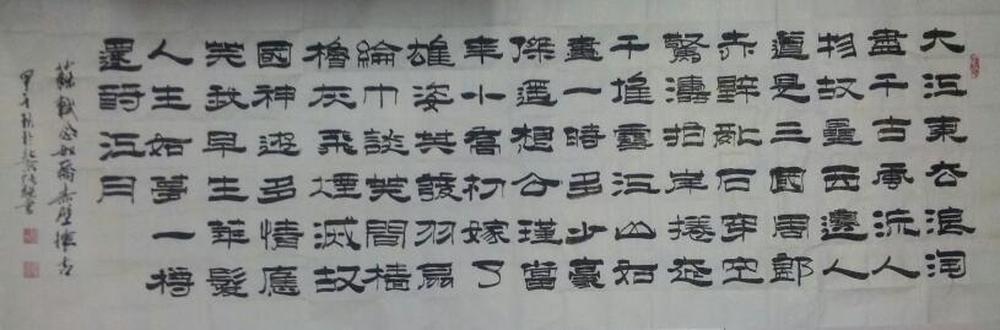 大江東去浪淘
盡千古風流人
物故壘西邊人
道是三國周郎
赤壁亂石穿空
驚濤拍岸捲起
千堆雪江山如
畫一時多少豪
傑遙想公瑾當
年小喬初嫁了
雄姿英發羽扇
綸巾談笑間檣
櫓灰飛煙滅故
國神遊多情應
笑我早生華髮
人生如夢一樽
還酹江月
蘇軾念奴嬌赤壁懷古
甲午秋於